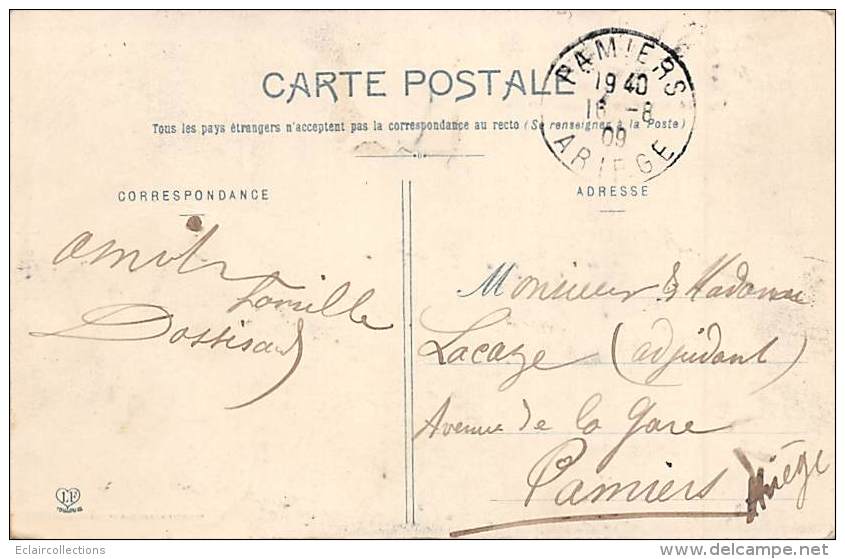 CARTE POSTALE
Tous les pays étrangers n'acceptent pas la correspondance au recto (Se renseigner à la Poste)
PAMIERS
19 40
16 -8
09
ARIEGE
CORRESPONDANCE
ADRESSE
Famille
Monsieur & Madame
Lacaze (adjudant)
Avenue de la Gare
Pamiers
Ariège
LF
Eclaircollections
delcampe.net